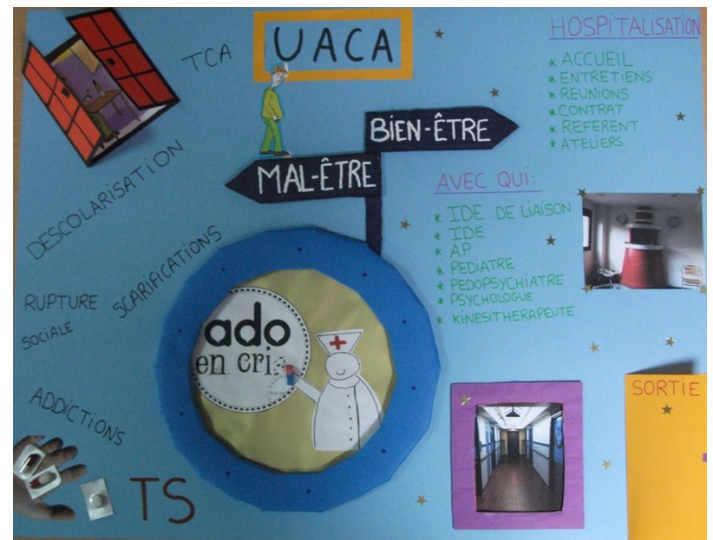 UACA
TCA
BIEN-ÊTRE
MAL-ÊTRE
DESCOLARISATION
SCARIFICATIONS
RUPTURE
SOCIALE
ADDICTIONS
TS
ado
en cri
HOSPITALISATION
* ACCUEIL
* ENTRETIENS
* REUNIONS
* CONTRAT
* REFERENT
* ATELIERS
AVEC QUI:
* IDE DE LIAISON
* IDE
* AP
* PEDIATRE
* PEDOPSYCHIATRE
* PSYCHOLOGUE
* KINESITHERAPEUTE
SORTIE